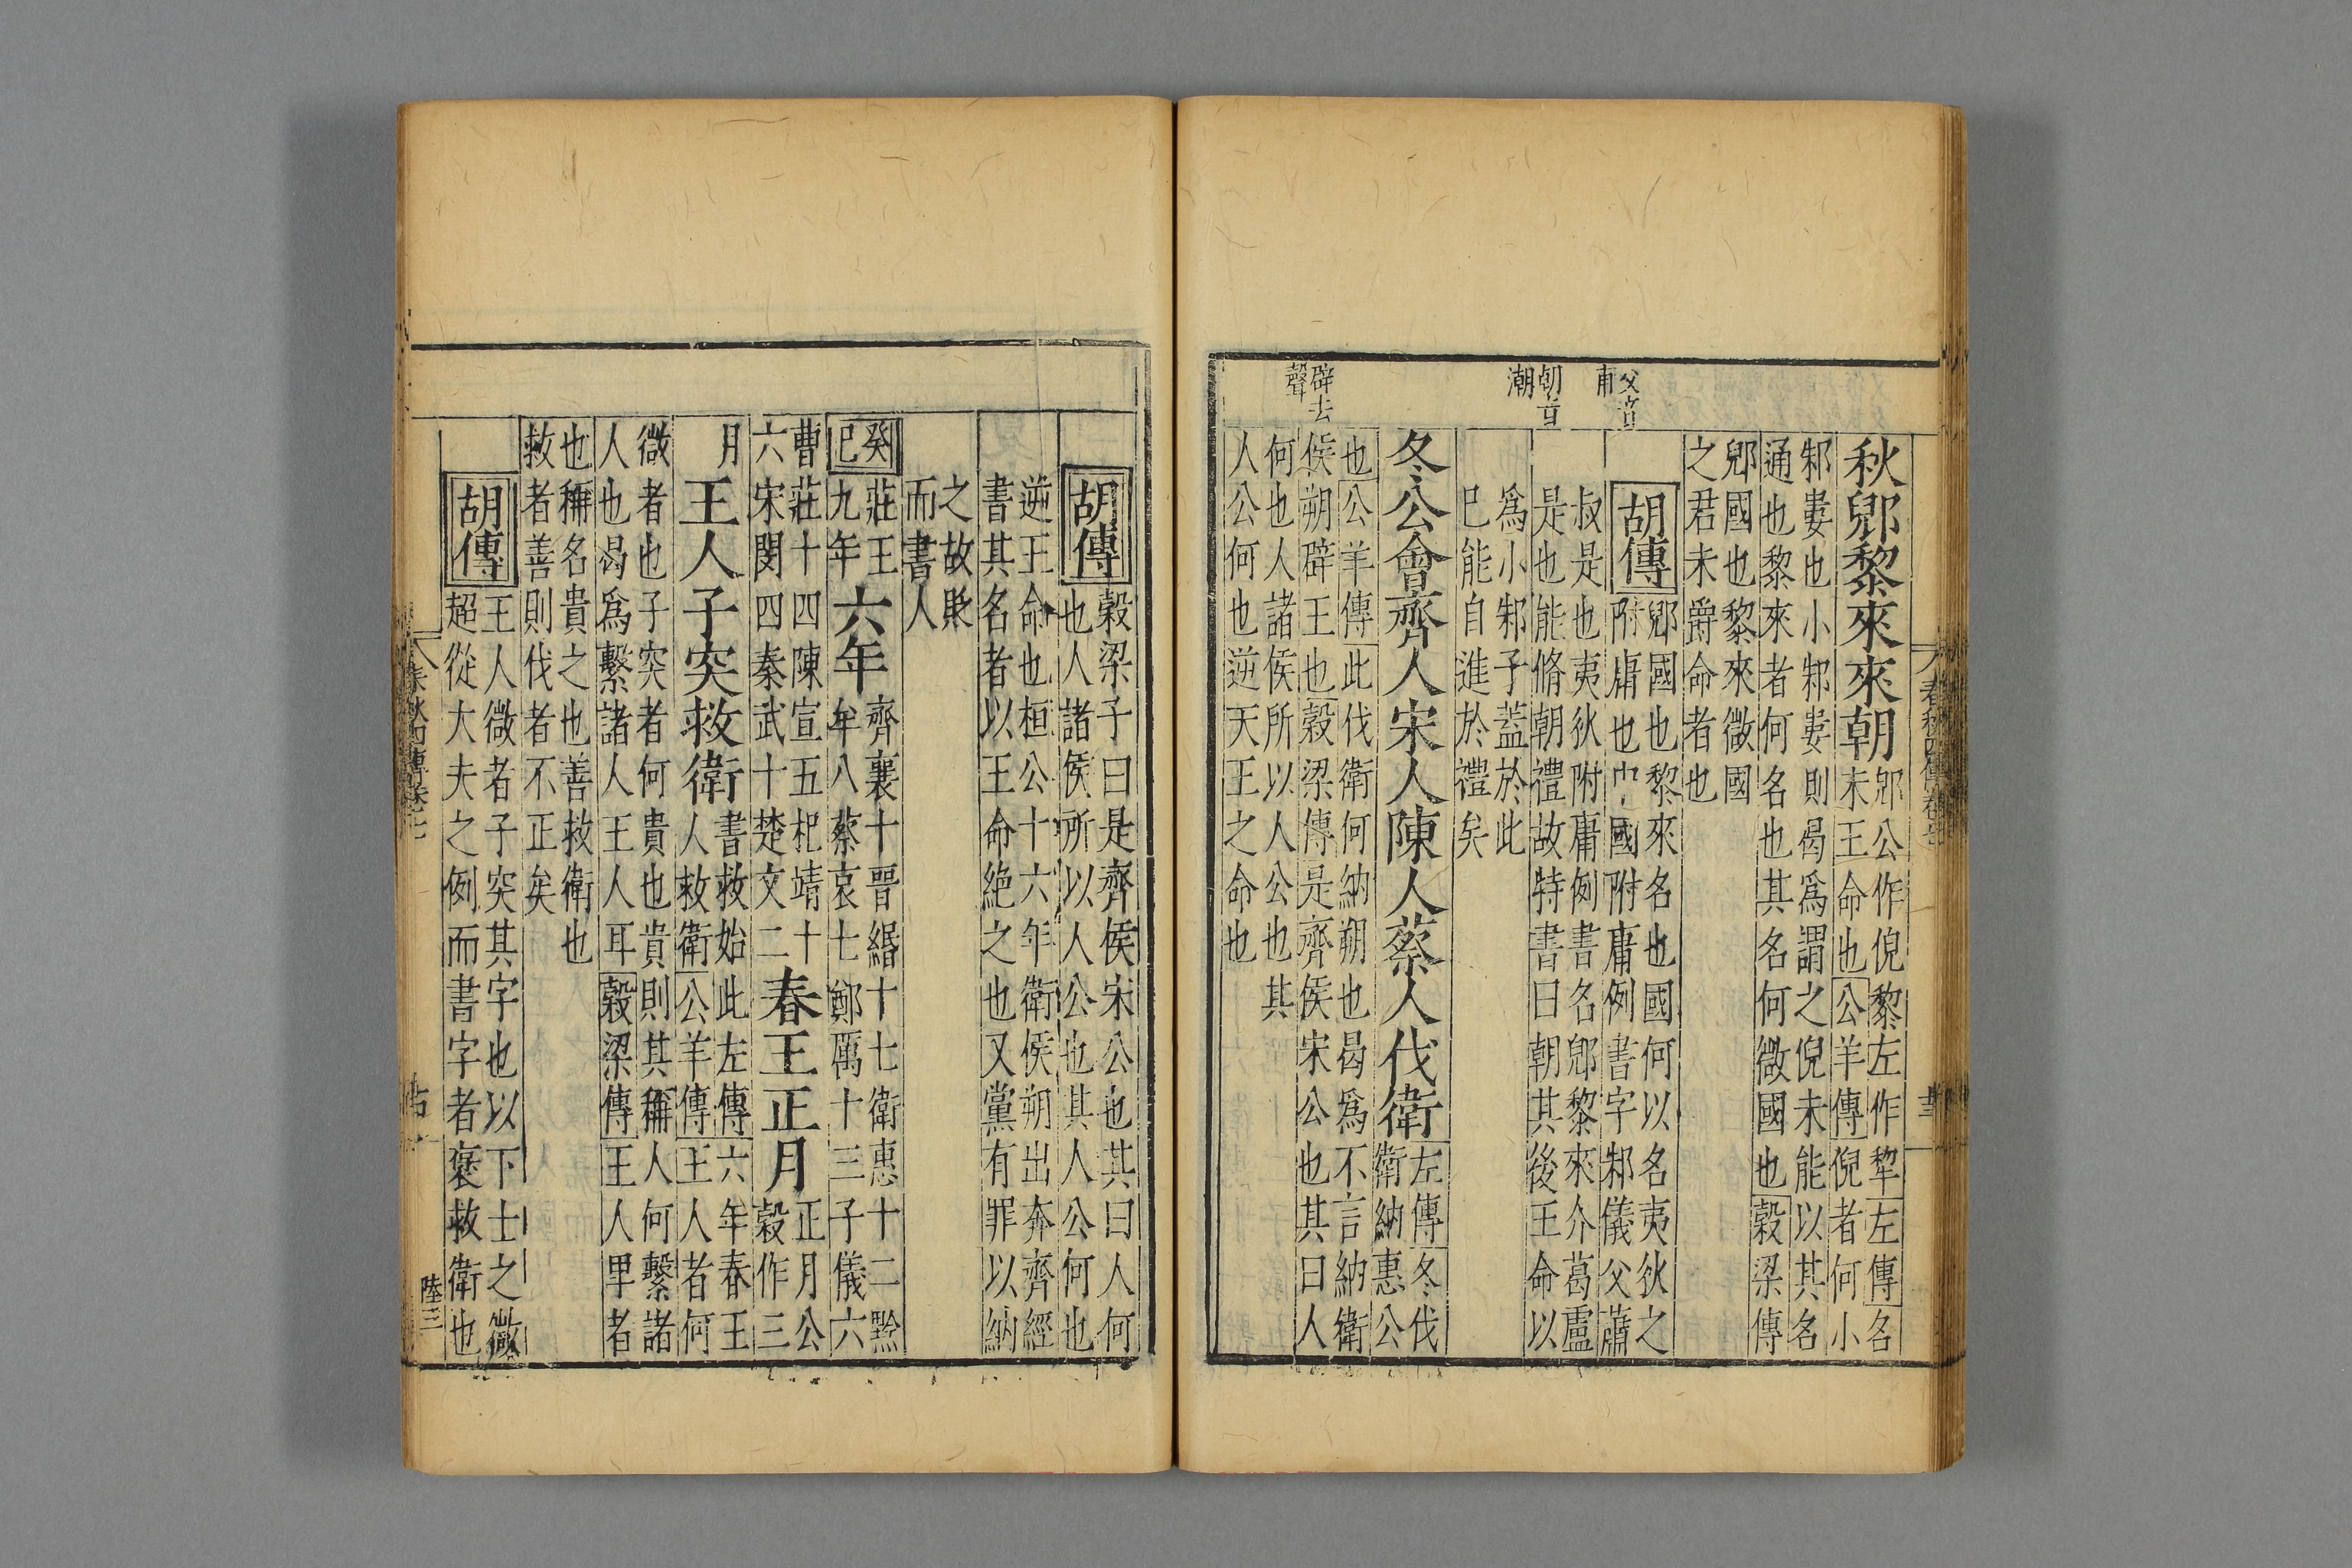 父音甫
朝音潮
辟去聲
秋郳黎來來朝
郳公作倪黎左作犂左傳名
未王命也公羊傳倪者何小
邾婁也小邾婁則曷爲謂之倪未能以其名
通也黎來者何名也其名何微國也穀梁傳
郳國也黎來微國
之君未爵命者也
胡傳
郳國也黎來名也國何以名夷狄之
附庸也中國附庸例書字邾儀父蕭
叔是也夷狄附庸例書名郳黎來介葛盧
是也能脩朝禮故特書曰朝其後王命以
爲小邾子蓋於此
已能自進於禮矣
冬公會齊人宋人陳人蔡人伐衛
左傳冬伐
衛納惠公
也公羊傳此伐衛何納朔也曷爲不言納衛
侯朔辟王也穀梁傳是齊侯宋公也其曰人
何也人諸侯所以人公也其
人公何也逆天王之命也
胡傳
穀梁子曰是齊侯宋公也其曰人何
也人諸侯所以人公也其人公何也
逆王命也桓公十六年衛侯朔出奔齊經
書其名者以王命絶之也又黨有罪以納
之故貶
而書人
癸巳
莊王
九年
六年
齊襄十晉緡十七衛惠十二黔
牟八蔡哀七鄭厲十三子儀六
曹莊十四陳宣五杞靖十
六宋閔四秦武十楚文二
春王正月
正月公
穀作三
月
王人子突救衛
書救始此左傳六年春王
人救衛公羊傳王人者何
微者也子突者何貴也貴則其稱人何繫諸
人也曷爲繫諸人王人耳穀梁傳王人卑者
也稱名貴之也善救衛也
救者善則伐者不正矣
胡傳
王人微者子突其字也以下士之微
超從大夫之例而書字者褒救衛也
陸三